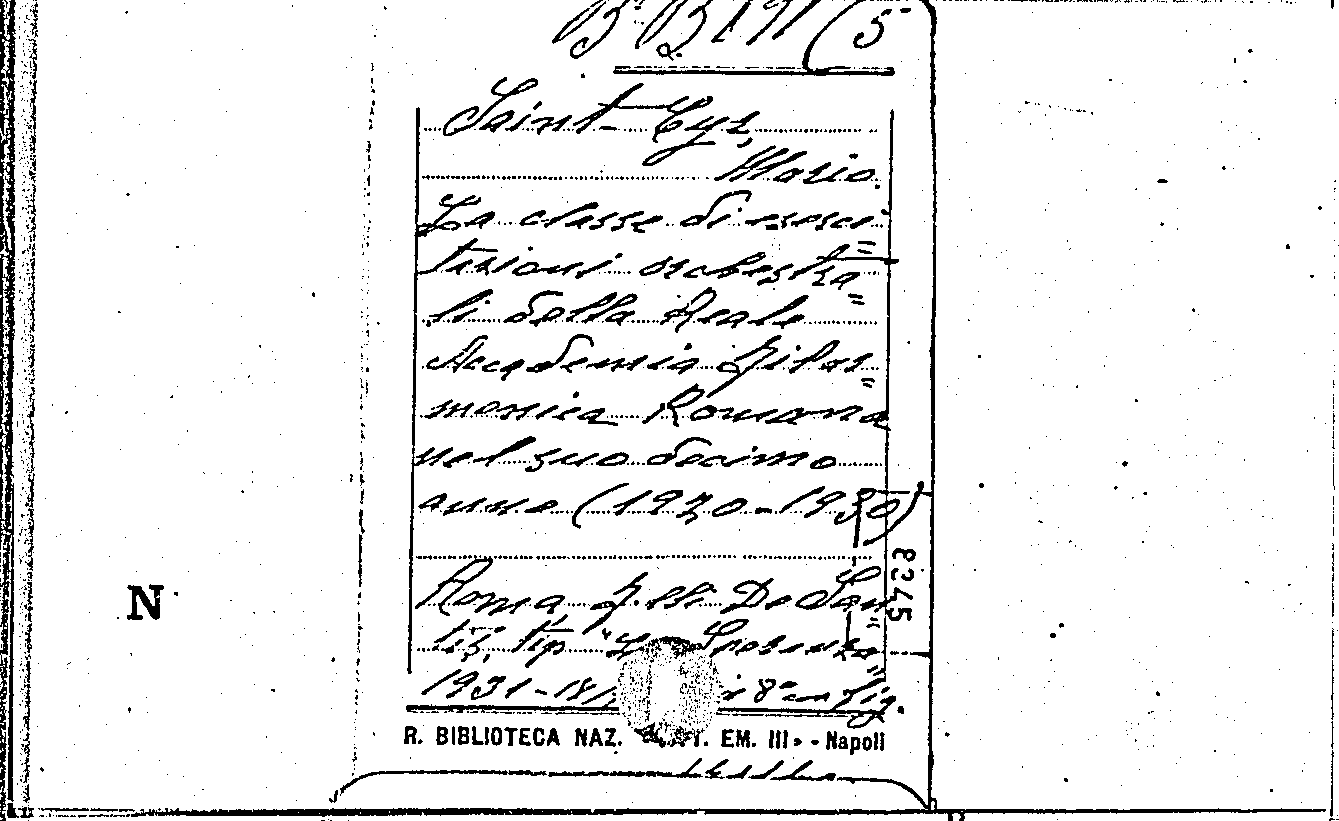 (5
Saint-Cyr,
Mario.
La classe di eserci=
tazioni orchestra=
li della Reale
Accademia Filar=
monica Romana
nel suo decimo
anno (1920-1930)
8245
Roma, F.lli De San=
tis, tip. "La Speranza"
1931-
in 8° con fig.
N
R. BIBLIOTECA NAZ. EM. III» - Napoli